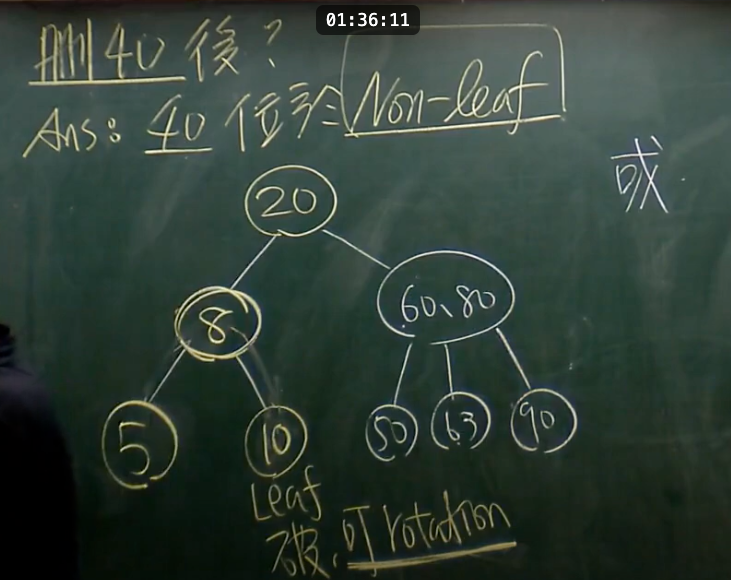 01:36:11
刪40後?
Ans: 40位於Non-leaf
或
20
8
60、80
5
10
50
63
90
Leaf
破,可rotation